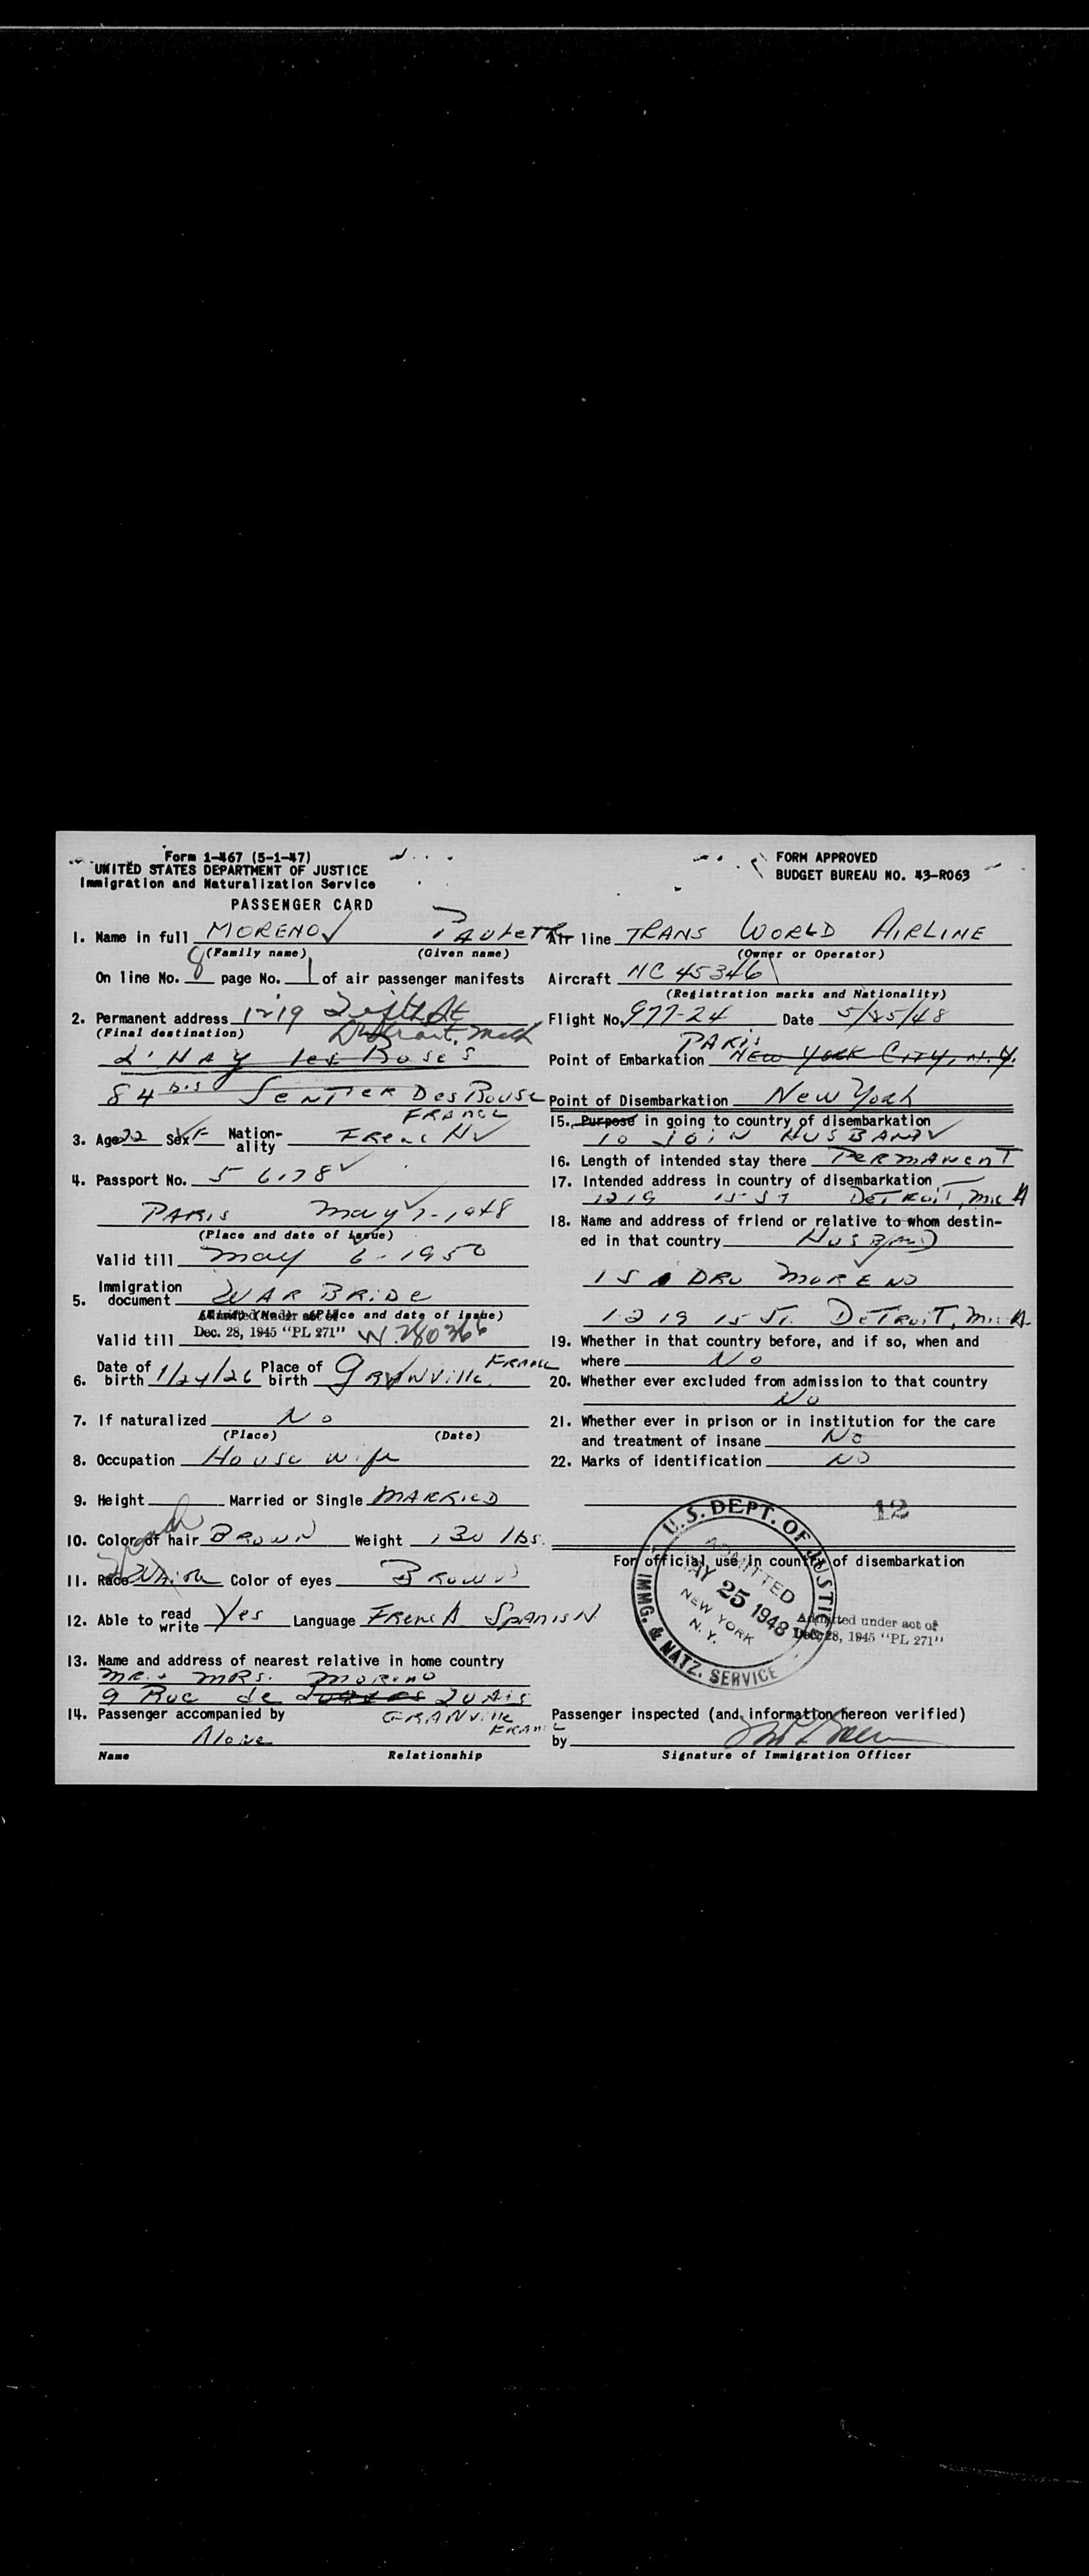 Form 1-467 (5-1-47)
UNITED STATES DEPARTMENT OF JUSTICE
Immigration and Naturalization Service
PASSENGER CARD
FORM APPROVED
BUDGET BUREAU NO. 43-R063
1. Name in full MORENO
(Family name) (Given name)
On line No. 8 page No. 1 of air passenger manifests
2. Permanent address 1219
(Final destination)
L'HAY les Roses
84 bis SENTIER Des
FRANCE
3. Age 22 Sex F Nation-ality FRENCH
4. Passport No. 56178
PARIS May 7-1948
(Place and date of issue)
Valid till May 6-1950
5. Immigration document WAR BRIDE
Admitted under act of
(Place and date of issue)
Valid till Dec. 28, 1945 "PL 271" W.280366
6. Date of birth 1/24/26 Place of birth GRANVille FRANCE
7. If naturalized No
(Place) (Date)
8. Occupation House wife
9. Height Married or Single MARRIED
10. Color of hair BROWN Weight 130 lbs.
11. Race Color of eyes BROWN
12. Able to read write Yes Language FRENCH SPANISH
13. Name and address of nearest relative in home country
MR. MRS. MORENO
9 Rue de JUAIS
GRANVille
FRANCE
14. Passenger accompanied by
Alone
Name Relationship
Air line TRANS WORLD AIRLINE
(Owner or Operator)
Aircraft NC 45346
(Registration marks and Nationality)
Flight No. 977-24 Date 5/25/48
PARIS
Point of Embarkation NEW YORK CITY, N.Y.
Point of Disembarkation New York
15. Purpose in going to country of disembarkation
TO JOIN HUSBAND
16. Length of intended stay there PERMANENT
17. Intended address in country of disembarkation
1219 15 ST DETROIT, MICH
18. Name and address of friend or relative to whom destin-
ed in that country HUSBAND
ISADRO MORENO
1219 15 ST. DETROIT, MICH.
19. Whether in that country before, and if so, when and
where No
20. Whether ever excluded from admission to that country
No
21. Whether ever in prison or in institution for the care
and treatment of insane No
22. Marks of identification NO
12
For official use in country of disembarkation
U.S. DEPT. OF JUSTICE
ADMITTED
MAY 25 1948
NEW YORK
N.Y.
IMMG. & NATZ. SERVICE
Admitted under act of
Dec. 28, 1945 "PL 271"
Passenger inspected (and information hereon verified)
by
Signature of Immigration Officer